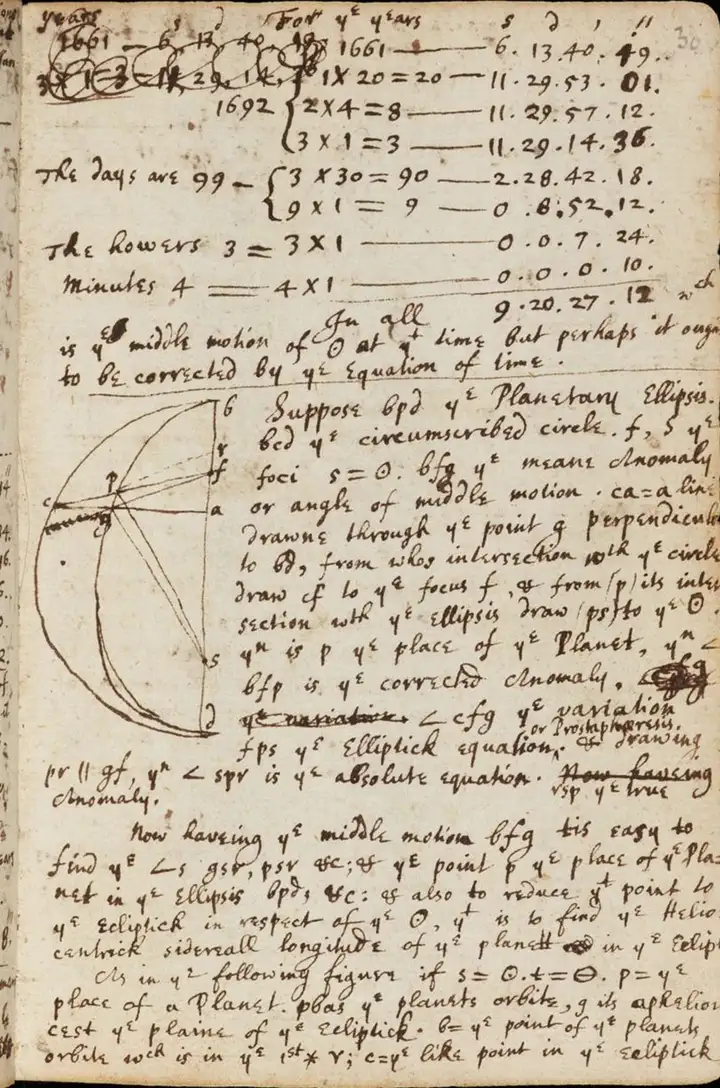 years s d For yᵉ years s d ' "
1661 — 6 13 40 1661 —— 6. 13. 40. 49.
3 × 1 = 3 = 11 29. 14. 1 X 20 = 20 — 11. 29. 53. 01.
1692 { 2 X 4 = 8 —— 11. 29. 57. 12.
3 X 1 = 3 —— 11. 29. 14. 36.
The days are 99 — { 3 X 30 = 90 —— 2. 28. 42. 18.
9 X 1 = 9 —— 0. 8. 52. 12.
The howers 3 = 3 X 1 —— 0. 0. 7. 24.
Minutes 4 = 4 X 1 —— 0. 0. 0. 10.
In all 9. 20. 27. 12 wᶜʰ
is yᵉ middle motion of ☉ at yᵗ time but perhaps it ough
to be corrected by yᵉ Equation of time.
Suppose bpd yᵉ Planetary Ellipsis.
bcd yᵉ circumscribed circle. f, s yᵉ
foci s = ☉. bfg yᵉ meane Anomaly
or angle of middle motion. ca = a line
drawne through yᵉ point g perpendicul
to bd, from whos intersection wᵗʰ yᵉ circle
draw cf to yᵉ focus f, & from (p) its inter
section wᵗʰ yᵉ Ellipsis draw (ps) to yᵉ ☉.
yⁿ is p yᵉ place of yᵉ Planet, yⁿ <
bfp is yᵉ corrected Anomaly. < cfg
yᵉ variation. < cfg yᵉ variation
or Prostaphæresis.
fps yᵉ Elliptick equation. & drawing
pr || gf, yⁿ < spr is yᵉ absolute equation. Now haveing
rsp yᵉ true
Anomaly.
Now haveing yᵉ middle motion bfg tis easy to
find yᵉ <s gsr, psr &c; & yᵉ point p yᵉ place of yᵉ Pla=
net in yᵉ Ellipsis bpds &c: & also to reduce yᵗ point to
yᵉ Ecliptick in respect of yᵉ ☉, yᵗ is to find yᵉ Helio
centrick sidereall longitude of yᵉ planet in yᵉ Eclipt
As in yᵉ following figure if s = ☉. t = ⊖. p = yᵉ
place of a Planet. pbas yᵉ planets orbite, g its aphelion
cest yᵉ plaine of yᵉ Ecliptick. b = yᵉ point of yᵉ planets
orbite wᶜʰ is in yᵉ 1ˢᵗ * ♈; c = yᵉ like point in yᵉ Ecliptick
b
r
f
a
p
c
s
d
30